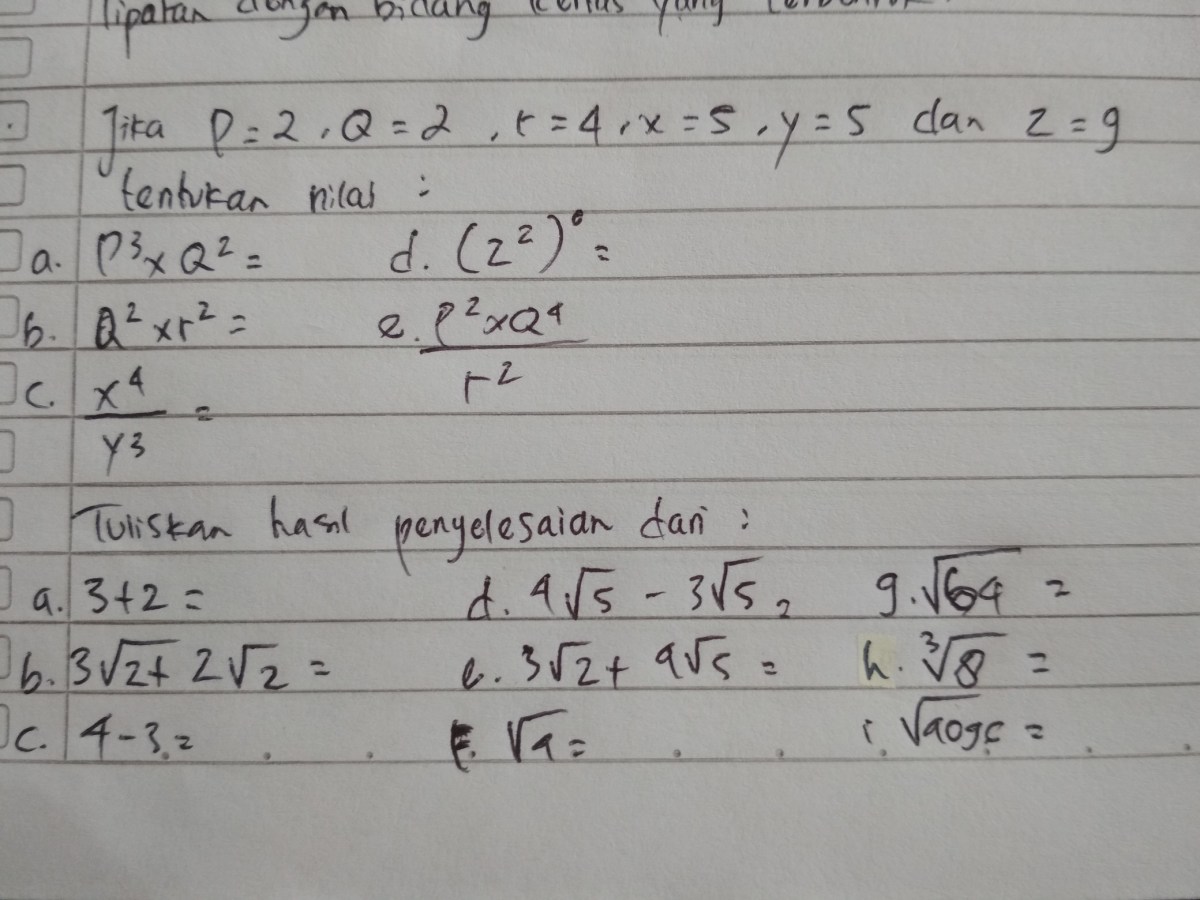 lipatan dengan bidang kertas yang terbentuk.
Jika P = 2, Q = 2, r = 4, x = 5, y = 5 dan z = 9
tentukan nilai :
a. P³ x Q² = d. (z²)⁰ =
b. Q² x r² = e. P² x Q⁴ / r²
c. x⁴ / y³ =
Tuliskan hasil penyelesaian dari :
a. 3 + 2 = d. 4√5 - 3√5 = g. √64 =
b. 3√2 + 2√2 = e. 3√2 + 4√5 = h. ³√8 =
c. 4 - 3 = F. √4 = i √4096 =